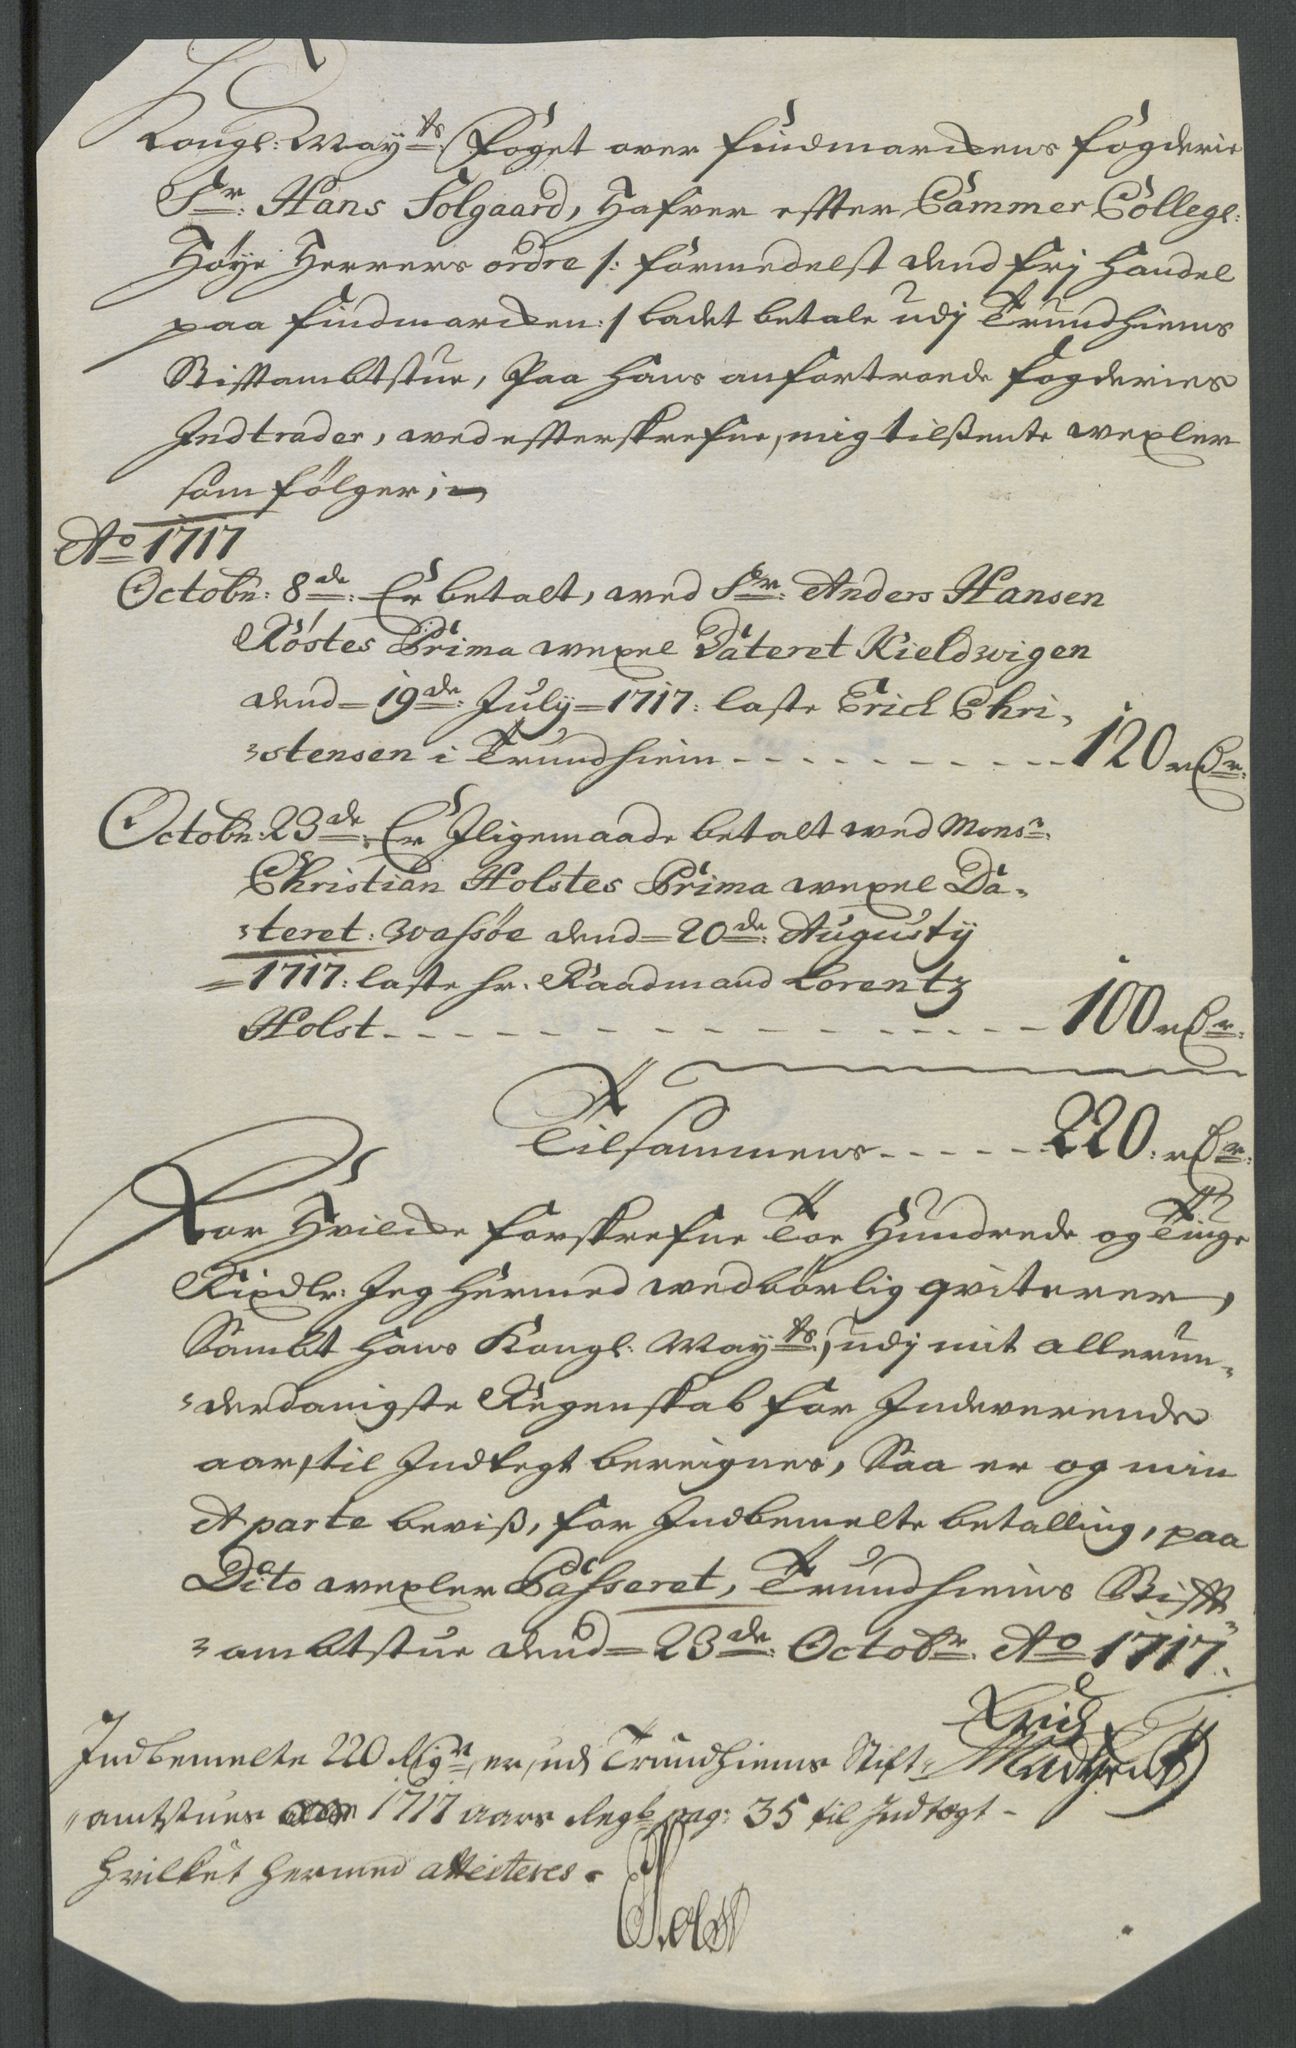 Kongl: May:ts Foget over Findmarckens fogderie
Sr: Hans Solgaard, Hafver effter Cammer Collegl:
Høye Herrers ordre /: formedelst dend frj Handel
paa Findmarcken :/ ladet betale udj Trundhiems
Stiftambtstue, Paa Hans anfortroede fogderies
Indtrader, wed effterskrefne, mig tilsente wexler
som følger,
Ao 1717
Octobr: 8de: Er betalt, wed Sr: Anders Hansen
Röstes Prima wexel Dateret Kieldwigen
dend 19de: July 1717: laste Erich Chri-
stensen i Trundhiem - - - - - - - - - - 120 rdr:
Octobr: 23de: Er Iligemaade betalt wed Monsr:
Christian Holstes Prima wexel Da-
teret: Wassøe dend 20de: Augustij
1717: laste hr. Raadmand Lorentz
Holst - - - - - - - - - - - - - - - 100 rdr:
Tilsammens - - - - - 220: rdr:
For Hvilcke forskrefne Toe Hundrede og Tiuge
Rixdlr: Jeg hermed wedbörlig qviterer,
Sambt Hans Kongl: May:ts, udj mit allerun-
derdanigste Regenskab for Indeverende
aar, til Indtegt bereignes, Saa er og min
Aparte beviß, for Indbemelte betalling, paa
Dito wexler Passeret, Trundhiems Stifft
ambtstue dend 23de: Octobr: Ao 1717.
Erich
Indbemelte 220 Rixdr, er udj Trundhiems Stift-
amtstues 1717 aars Regsk pag: 35 til Indtægt
hvilket hermed atteisteres.
Holst